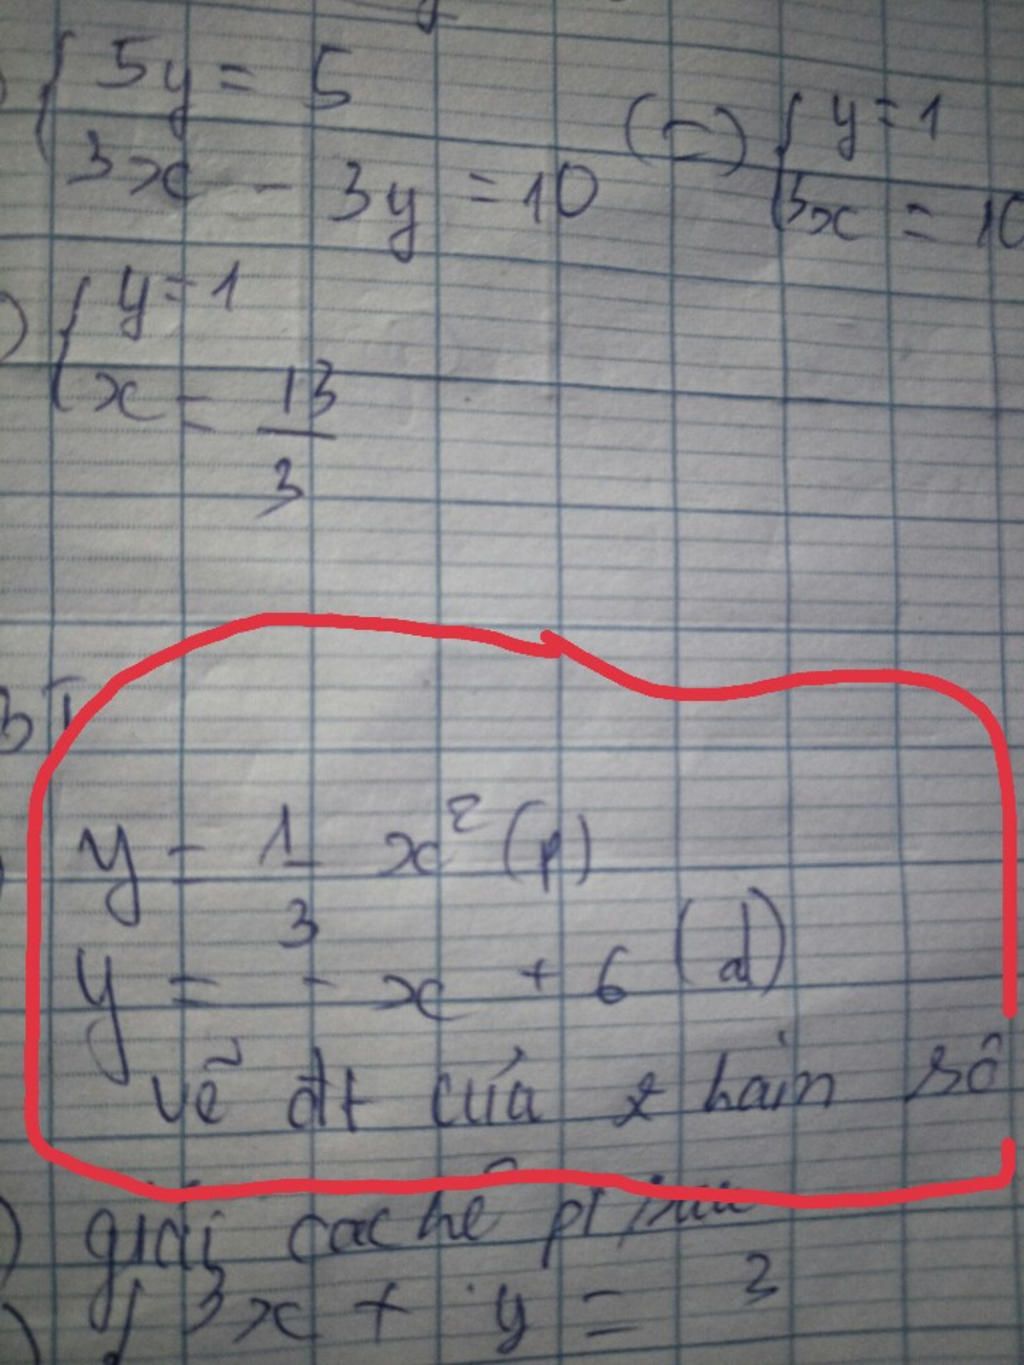 5y = 5
3x - 3y = 10 (=) { y = 1
3x = 10
{ y = 1
x = 13/3
BT
y = 1/3 x² (p)
y = - x + 6 (d)
vẽ đt của 2 hàm số
giải các hệ pt sau
{ 3x + y = 3